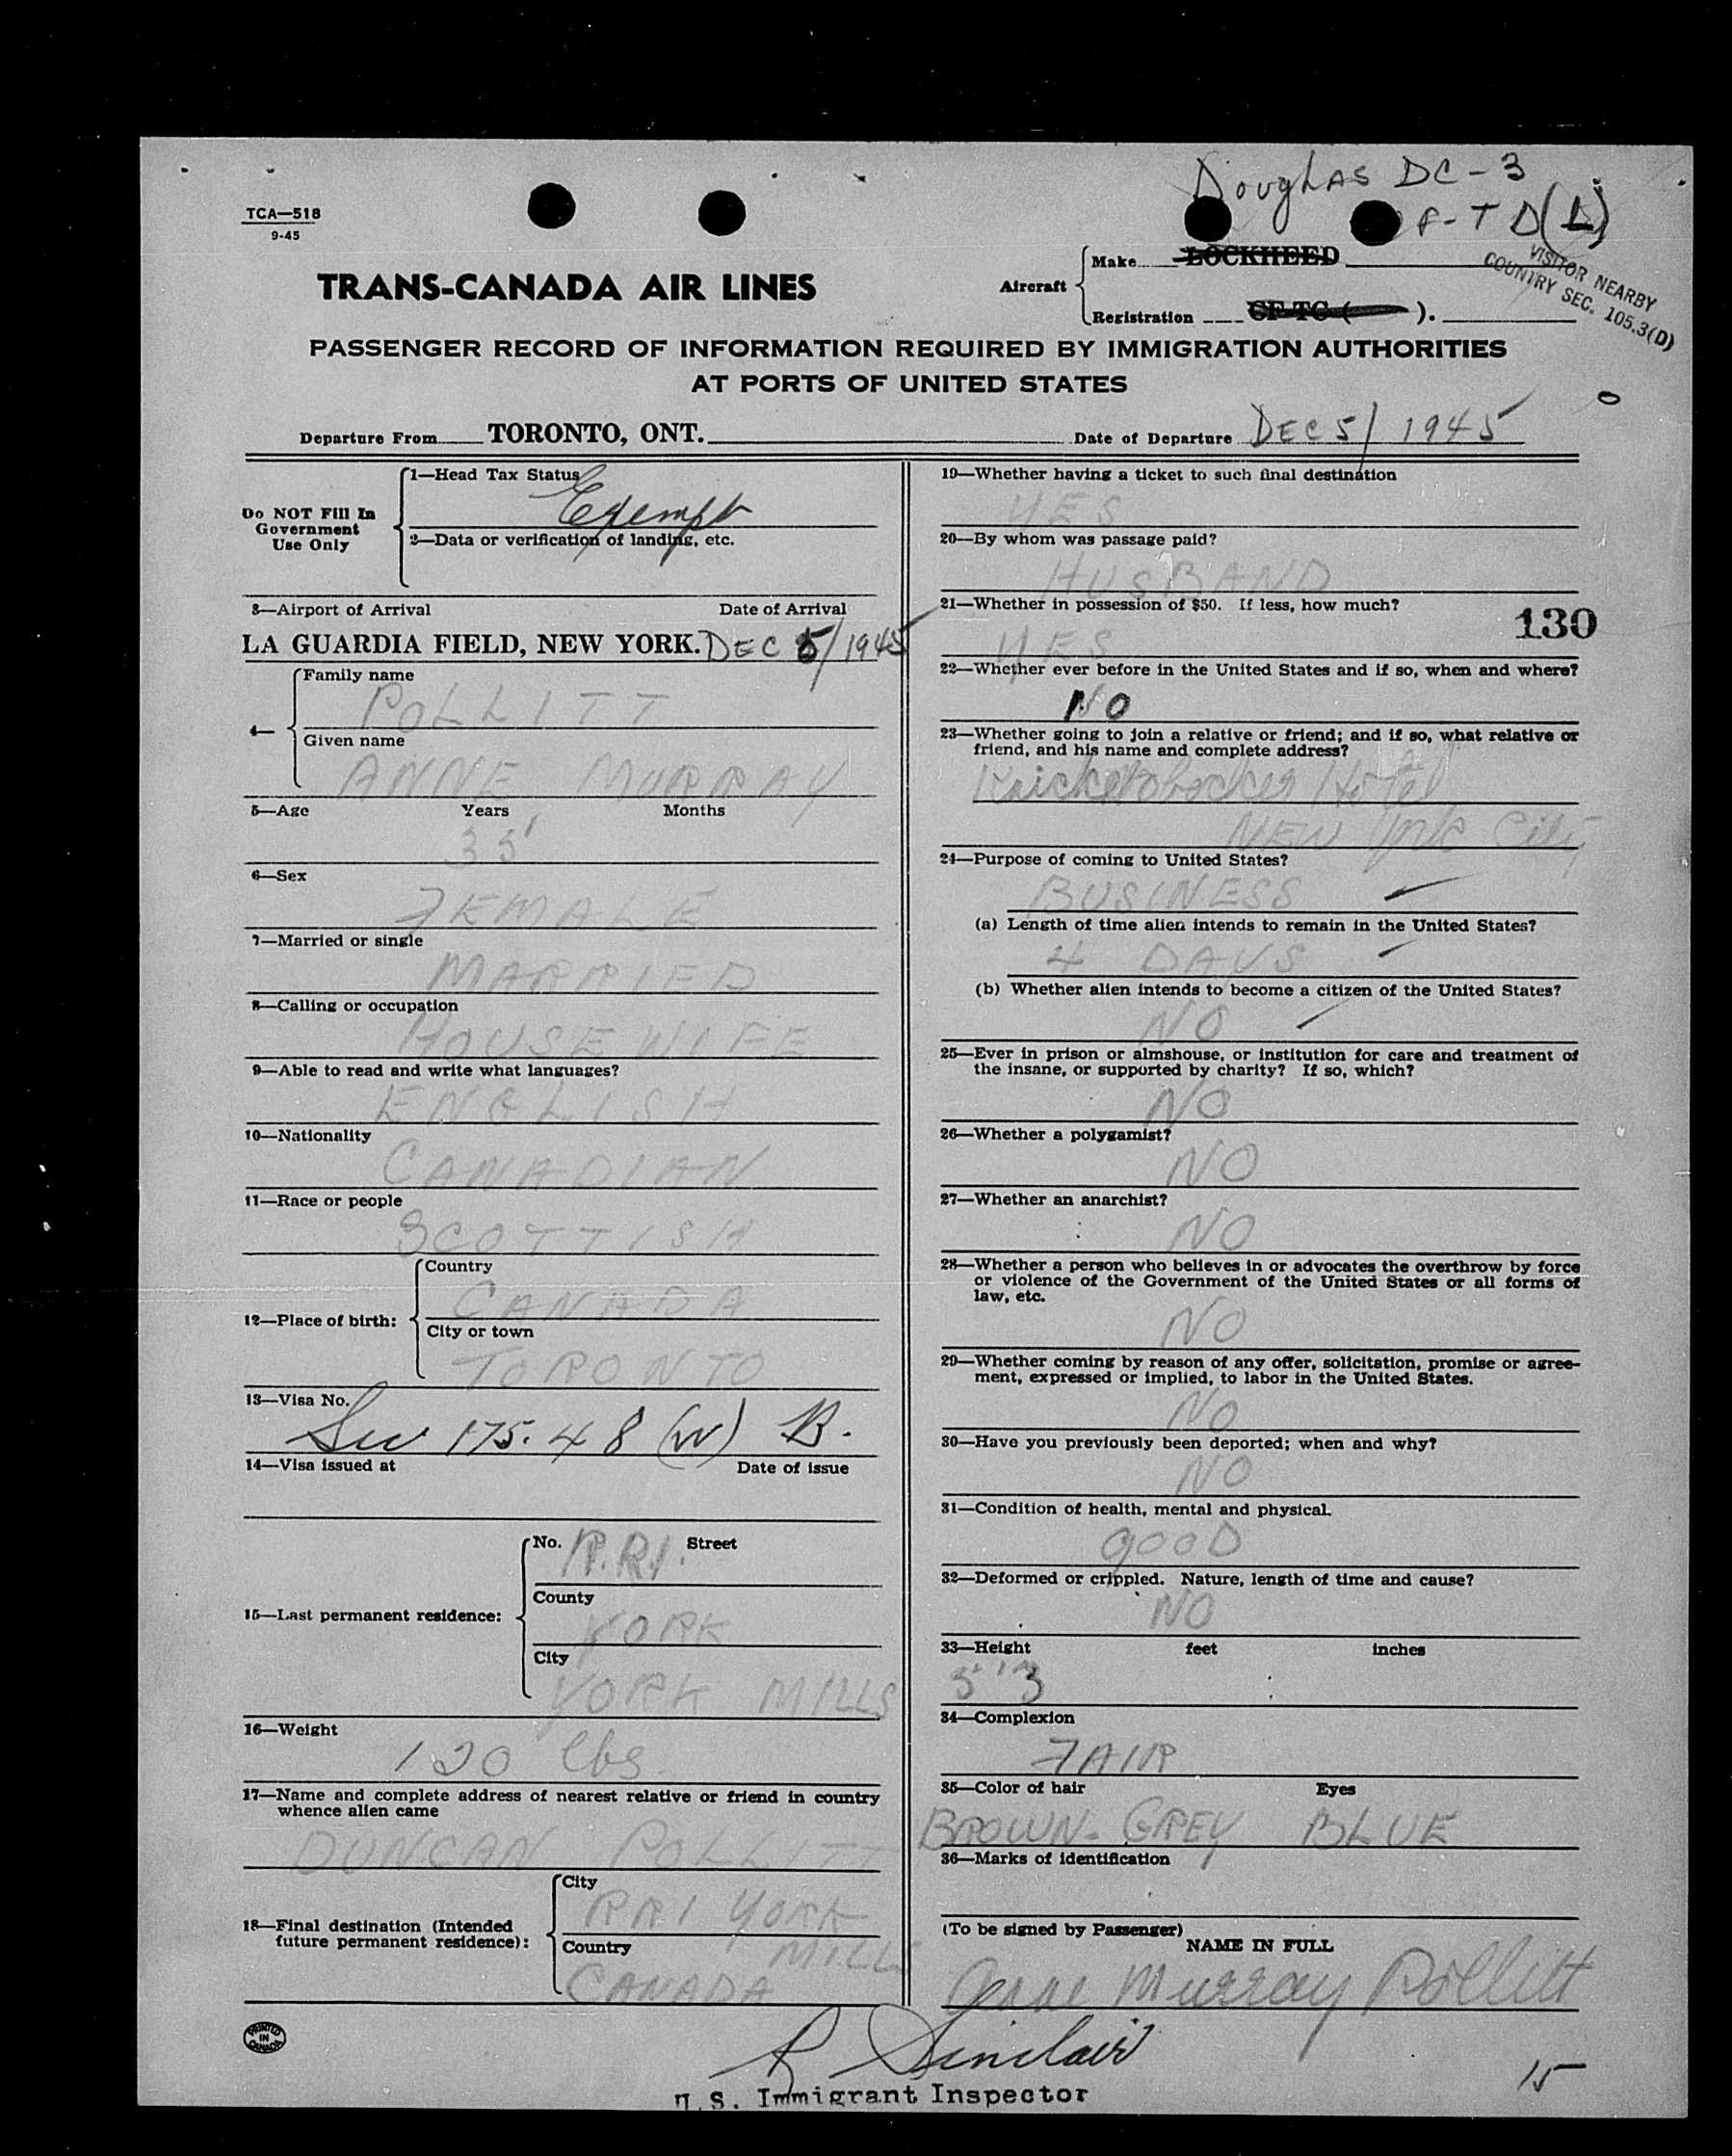 TCA—518
9-45
Douglas DC-3
F-TD(L)
VISITOR NEARBY
COUNTRY SEC. 105.3(D)
TRANS-CANADA AIR LINES
Aircraft
Make LOCKHEED
Registration CF-TC ( ).
PASSENGER RECORD OF INFORMATION REQUIRED BY IMMIGRATION AUTHORITIES
AT PORTS OF UNITED STATES
Departure From TORONTO, ONT. Date of Departure DEC 5/1945
Do NOT Fill In
Government
Use Only
1—Head Tax Status
Exempt
2—Data or verification of landing, etc.
3—Airport of Arrival Date of Arrival
LA GUARDIA FIELD, NEW YORK. DEC 5/1945
4—
Family name
POLLITT
Given name
ANNE MURRAY
5—Age Years Months
35
6—Sex
FEMALE
7—Married or single
MARRIED
8—Calling or occupation
HOUSEWIFE
9—Able to read and write what languages?
ENGLISH
10—Nationality
CANADIAN
11—Race or people
SCOTTISH
12—Place of birth:
Country
CANADA
City or town
TORONTO
13—Visa No.
Sec 175.48 (w) B.
14—Visa issued at Date of issue
15—Last permanent residence:
No. R.R.1. Street
County
YORK
City
YORK MILLS
16—Weight
120 lbs
17—Name and complete address of nearest relative or friend in country
whence alien came
DUNCAN POLLITT
18—Final destination (Intended
future permanent residence):
City
RR1 YORK
MILLS
Country
CANADA
19—Whether having a ticket to such final destination
YES
20—By whom was passage paid?
HUSBAND
21—Whether in possession of $50. If less, how much?
130
YES
22—Whether ever before in the United States and if so, when and where?
NO
23—Whether going to join a relative or friend; and if so, what relative or
friend, and his name and complete address?
Knickerbocker Hotel
NEW York City
24—Purpose of coming to United States?
BUSINESS
(a) Length of time alien intends to remain in the United States?
4 DAYS
(b) Whether alien intends to become a citizen of the United States?
NO
25—Ever in prison or almshouse, or institution for care and treatment of
the insane, or supported by charity? If so, which?
NO
26—Whether a polygamist?
NO
27—Whether an anarchist?
NO
28—Whether a person who believes in or advocates the overthrow by force
or violence of the Government of the United States or all forms of
law, etc.
NO
29—Whether coming by reason of any offer, solicitation, promise or agree-
ment, expressed or implied, to labor in the United States.
NO
30—Have you previously been deported; when and why?
NO
31—Condition of health, mental and physical.
GOOD
32—Deformed or crippled. Nature, length of time and cause?
NO
33—Height feet inches
5'3
34—Complexion
FAIR
35—Color of hair Eyes
BROWN-GREY BLUE
36—Marks of identification
(To be signed by Passenger)
NAME IN FULL
Anne Murray Pollitt
PRINTED
IN
CANADA
R Sinclair
U.S. Immigrant Inspector
15